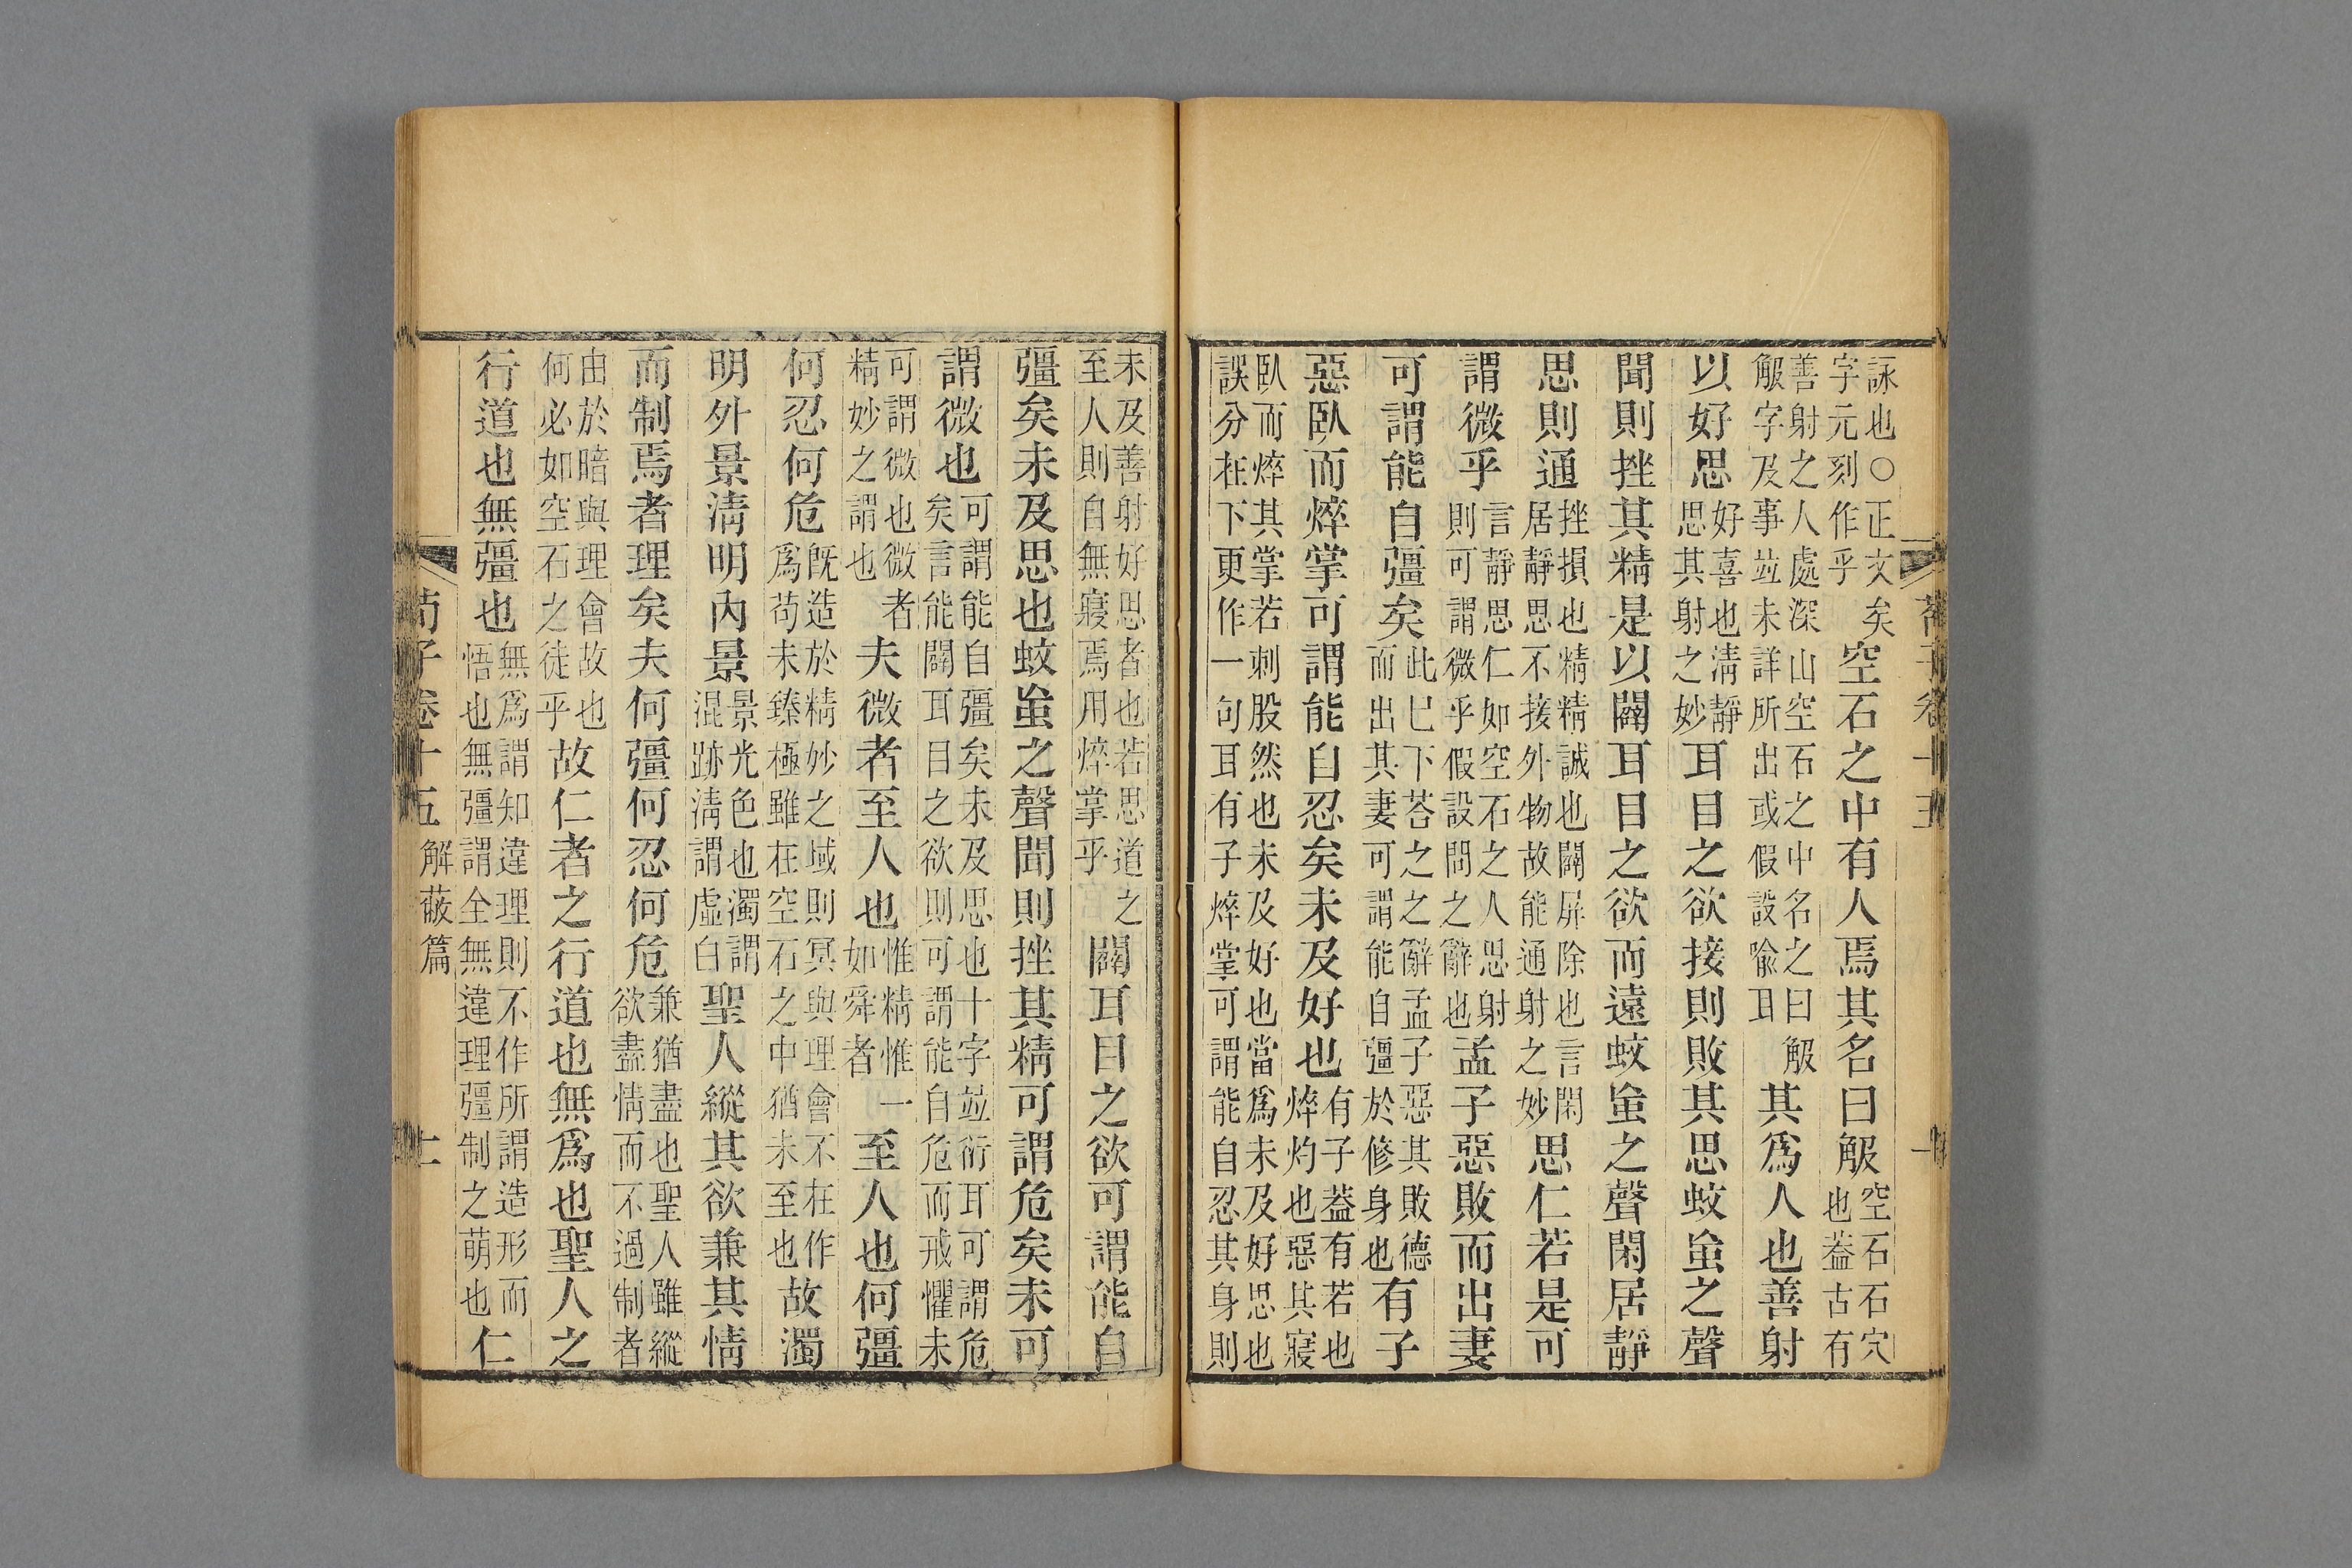 詠也○正文矣字元刻作乎空石之中有人焉其名曰觙空石石穴也葢古有
善射之人處深山空石之中名之曰觙觙字及事竝未詳所出或假設喻耳其爲人也善射
以好思好喜也清靜思其射之妙耳目之欲接則敗其思蚊䖟之聲
聞則挫其精是以闢耳目之欲而遠蚊䖟之聲閑居靜
思則通挫損也精精誠也闢屏除也言閑居靜思不接外物故能通射之妙思仁若是可
謂微乎言靜思仁如空石之人思射則可謂微乎假設問之辭也孟子惡敗而出妻
可謂能自彊矣此已下荅之之辭孟子惡其敗德而出其妻可謂能自彊於修身也有子
惡臥而焠掌可謂能自忍矣未及好也有子葢有若也焠灼也惡其寢
臥而焠其掌若刺股然也未及好也當爲未及好思也誤分在下更作一句耳有子焠掌可謂能自忍其身則
未及善射好思者也若思道之至人則自無寢焉用焠掌乎闢耳目之欲可謂能自
彊矣未及思也蚊䖟之聲聞則挫其精可謂危矣未可
謂微也可謂能自彊矣未及思也十字竝衍耳可謂危矣言能闢耳目之欲則可謂能自危而戒懼未
可謂微也微者精妙之謂也夫微者至人也惟精惟一如舜者至人也何彊
何忍何危既造於精妙之域則冥與理會不在作爲苟未臻極雖在空石之中猶未至也故濁
明外景清明內景景光色也濁謂混跡清謂虛白聖人縱其欲兼其情
而制焉者理矣夫何彊何忍何危兼猶盡也聖人雖縱欲盡情而不過制者
由於暗與理會故也何必如空石之徒乎故仁者之行道也無爲也聖人之
行道也無彊也無爲謂知違理則不作所謂造形而悟也無彊謂全無違理彊制之萌也仁
荀子卷十五 解蔽篇